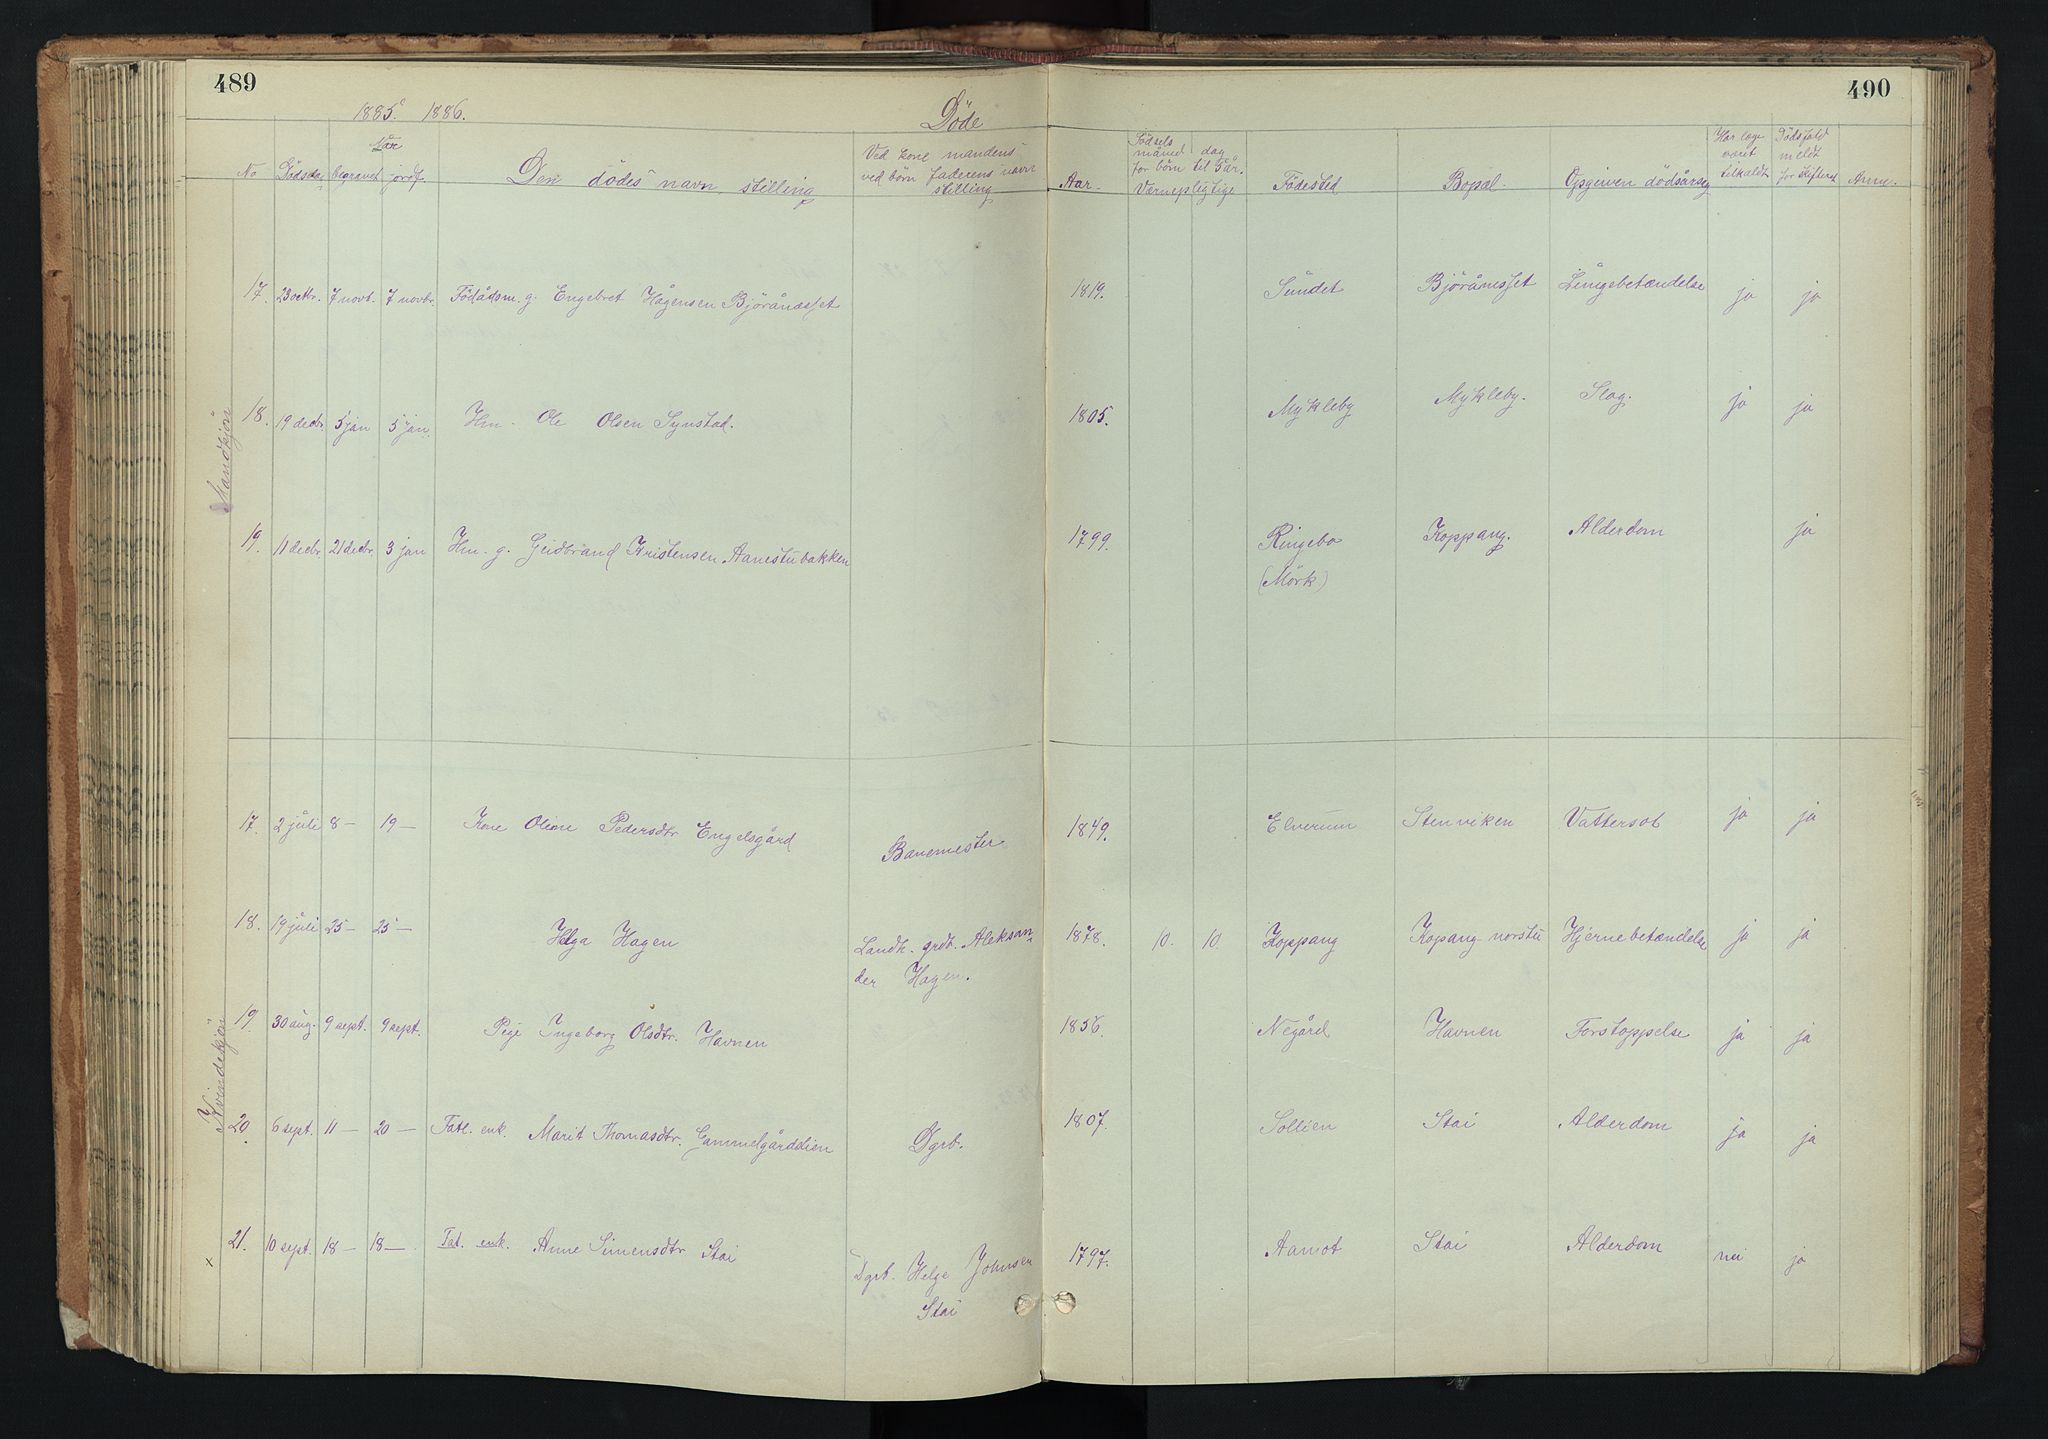 489
490
1885. 1886.
Døde
No Dødsdag begravet Når jordf. Den dødes navn stilling Ved kone mandens ved börn faderens navn stilling Aar. Födsels måned dag for börn til 5 år. Værnepligtige Födested Bopæl. Opgiven dödsårsag Har læge været tilkaldt Dödsfald meldt for skifteret Anm.
Mandkjön
17. 23 octbr. 7 novb. 7 novbr. Födådsm. g. Engebret Hågensen Björåneset 1819. Sundet Björåneset Lungebetændelse ja ja
18. 19 decbr. 5 jan 5 jan. Hm. Ole Olsen Synstad. 1805. Mykleby Mykleby. Slag. ja ja
19. 11 decbr. 21 decbr. 3 jan Hm. g. Gudbrand Kristensen Aanestubakken 1799. Ringebo Koppang. Alderdom ja
(Mörk)
Kvindekjön
17. 2 juli 8 — 19 — Kone Oline Pedersdtr Engelsgård Banemester 1849. Elverum Stenviken Vattersot ja ja
18. 19 juli 25 — 25 — Helga Hagen Landh. grdb. Aleksan-
der Hagen. 1878. 10. 10 Koppang Kopang norstu Hjernebetændelse ja ja
19 30 aug. 9 sept. 9 sept. Pige Ingeborg Olsdtr. Havnen 1856. Negård Havnen Forstoppelse ja ja
20. 6 sept. 11 — 20 — Fatl. enk. Marit Thomasdtr. Gammelgårdslien Dgrb. 1807. Sollien Stai Alderdom ja ja
x 21. 10 sept. 18 — 18 — Fat. enk. Anne Simensdtr Stai Dgrb. Helge Johnsen
Stai 1797. Aamot Stai Alderdom nei ja